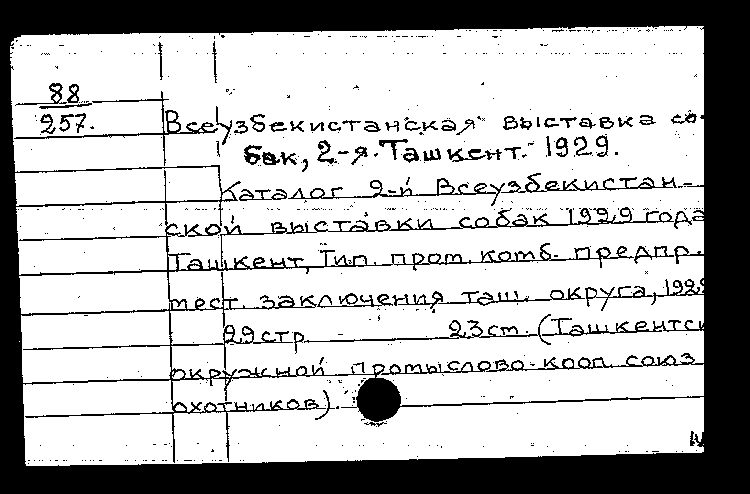 88
257.
Всеузбекистанская выставка со-
бак, 2-я. Ташкент. 1929.
Каталог 2-й Всеузбекистан-
ской выставки собак 1929 года
Ташкент, Тип. пром. комб. предпр.
мест. заключения таш. округа, 1929
29 стр. 23 см. (Ташкентск
окружной промыслово-кооп. союз
охотников).